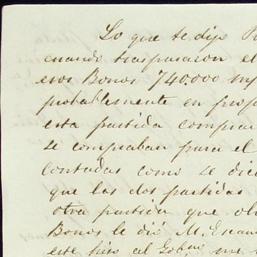 Lo que te dije
cuando traspasaron el
esos Bonos 740.000
probablemente en
esta partida
se compraban para el
contadas como se
que las dos partidas
otra partida que
Bonos le dió M.
este